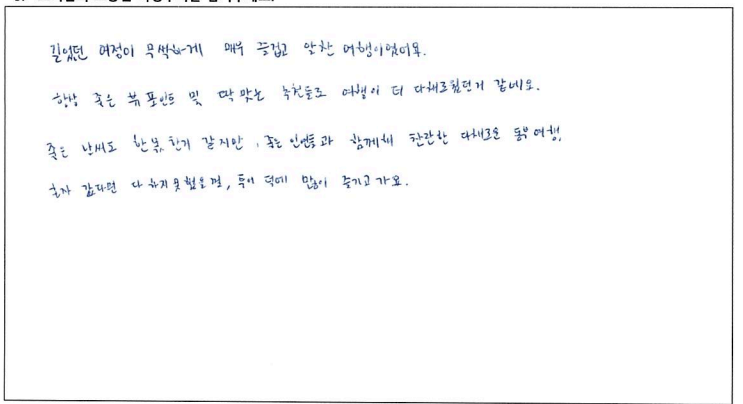 길었던 여정이 무색하게 매우 즐겁고 알찬 여행이었어요.
항상 좋은 뷰 포인트 및 딱 맞는 추천들로 여행이 더 다채로웠던거 같네요.
좋은 날씨도 한 몫 한거 같지만, 좋은 인연들과 함께해 찬란한 다채로운 동부여행,
혼자 갔다면 다 하지 못했을 껄, 투어 덕에 많이 즐기고 가요.